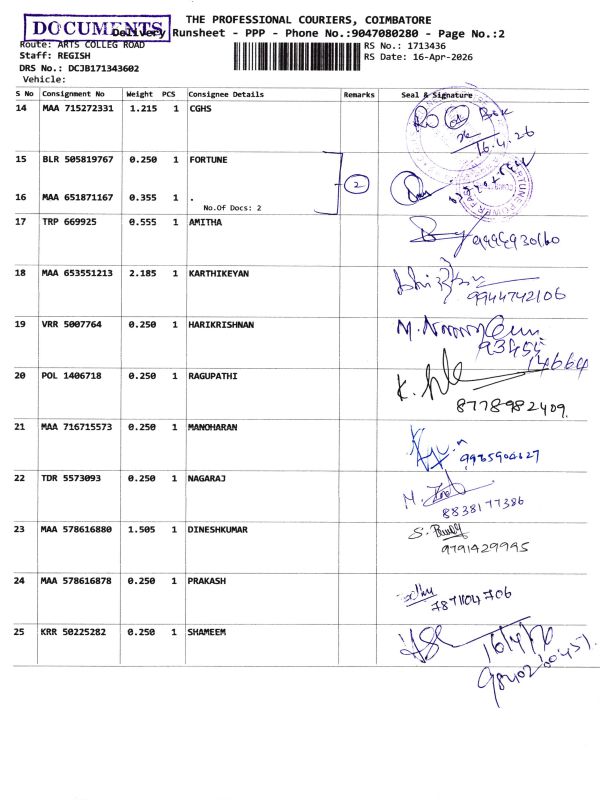 THE PROFESSIONAL COURIERS, COIMBATORE
DOCUMENTS
Delivery Runsheet - PPP - Phone No.:9047080280 - Page No.:2
Route: ARTS COLLEG ROAD
RS No.: 1713436
Staff: REGISH
RS Date: 16-Apr-2026
DRS No.: DCJB171343602
Vehicle:
S No Consignment No Weight PCS Consignee Details Remarks Seal & Signature
14 MAA 715272331 1.215 1 CGHS
16.4.26
15 BLR 505819767 0.250 1 FORTUNE
2
16 MAA 651871167 0.355 1 .
No.Of Docs: 2
17 TRP 669925 0.555 1 AMITHA
18 MAA 653551213 2.185 1 KARTHIKEYAN
9944742106
19 VRR 5007764 0.250 1 HARIKRISHNAN
93455
14664
20 POL 1406718 0.250 1 RAGUPATHI
8778982409
21 MAA 716715573 0.250 1 MANOHARAN
22 TDR 5573093 0.250 1 NAGARAJ
8838177386
23 MAA 578616880 1.505 1 DINESHKUMAR
9791429945
24 MAA 578616878 0.250 1 PRAKASH
7871104706
25 KRR 50225282 0.250 1 SHAMEEM